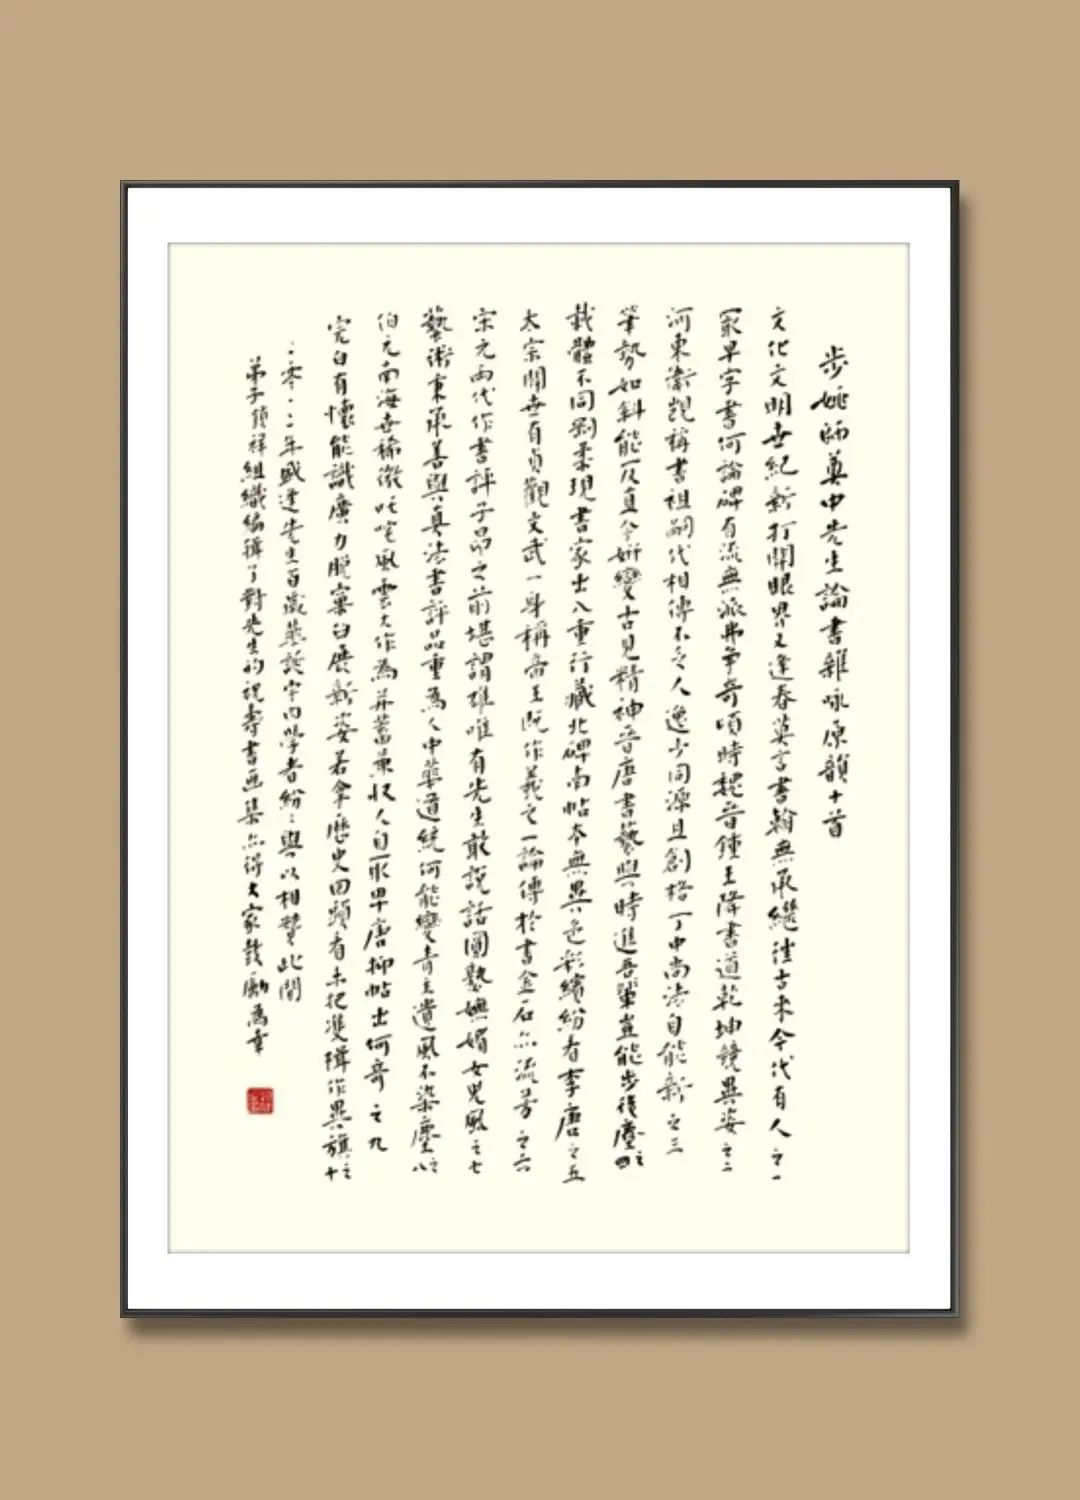 步姚師奠中先生論書雜咏原韻十首
文化文明世紀新打開眼界又逢春莫言書翰無承繼往古來今代有人之一
最早字書何論碑有流無派弗爭奇頃時捉音鍾王降書道乾坤競異姿之二
河東衛覬稱書祖嗣代相傳不乏人逸少同源且創格丁中尚法自能新之三
筆勢如斜能反直令妍變古見精神晉唐書藝與時進吾輩豈能步後塵之四
我體不同剛柔現書家出八重行藏北碑南帖本無異色彩繽紛看李唐之五
太宗開世有貞觀文武一身稱帝王既作羲之一論傳於書金石亦流芳之六
宋元兩代作書評子昂之前堪謂雄唯有先生敢說話圓熟嫵媚女兒風之七
藝術秉承善與真法書評品重為人中華道統何能變青主遺風不染塵之八
伯元南海世稀徵叱咤風雲大作為并蓄兼收人自最早唐抑帖出何奇之九
完白有懷能識廣力脫窠臼展新姿若拿歷史回頭看未把雙楫作異旗之十
二零一二年盛達先生百歲華誕宇內學者紛紛與以相贊此間
弟子領祥組織編輯了對先生的祝壽書画集亦得大家鼓勵為幸